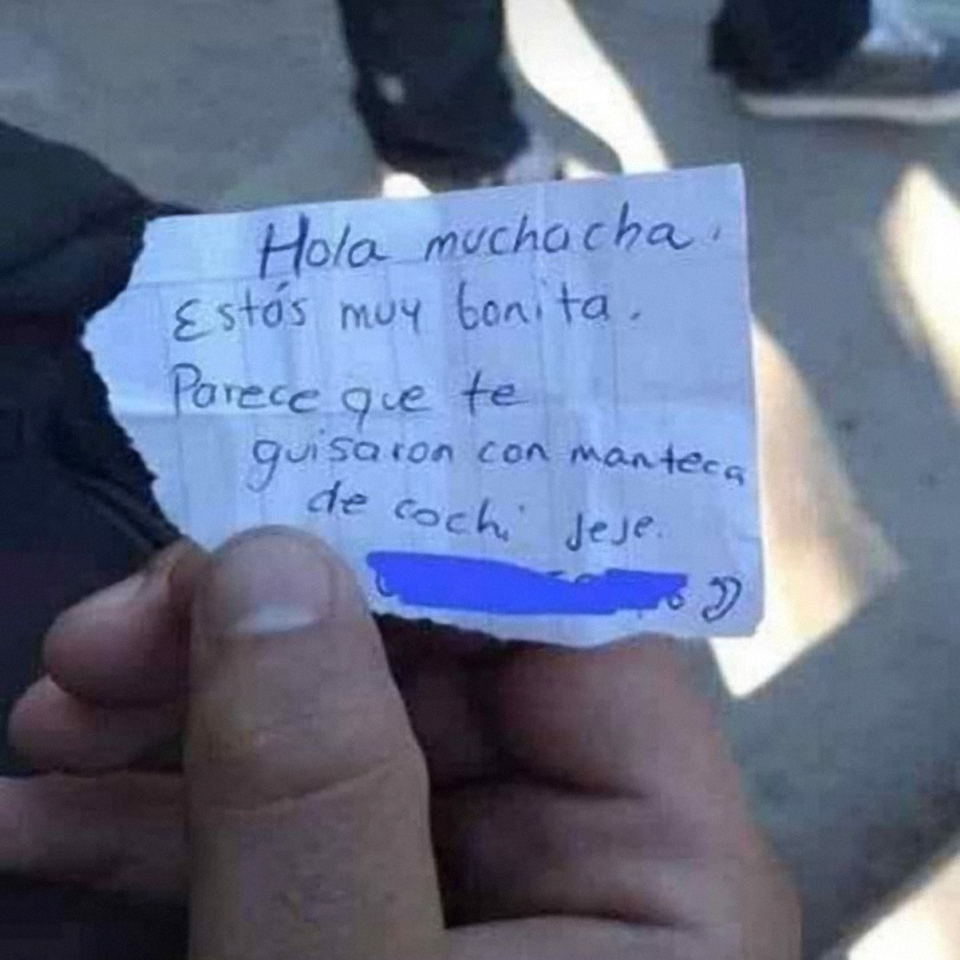 Hola muchacha.
Estás muy bonita.
Parece que te
guisaron con manteca
de cochi jeje.